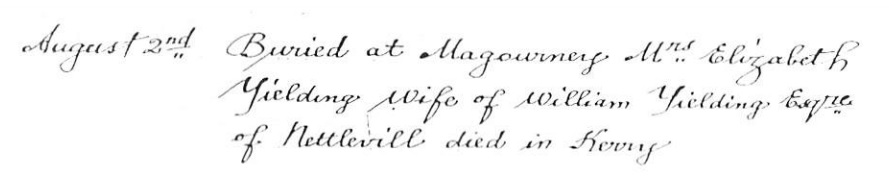 August 2nd Buried at Magourney Mrs Elizabeth
Yielding Wife of William Yielding Esqre
of Nettlevill died in Kerry